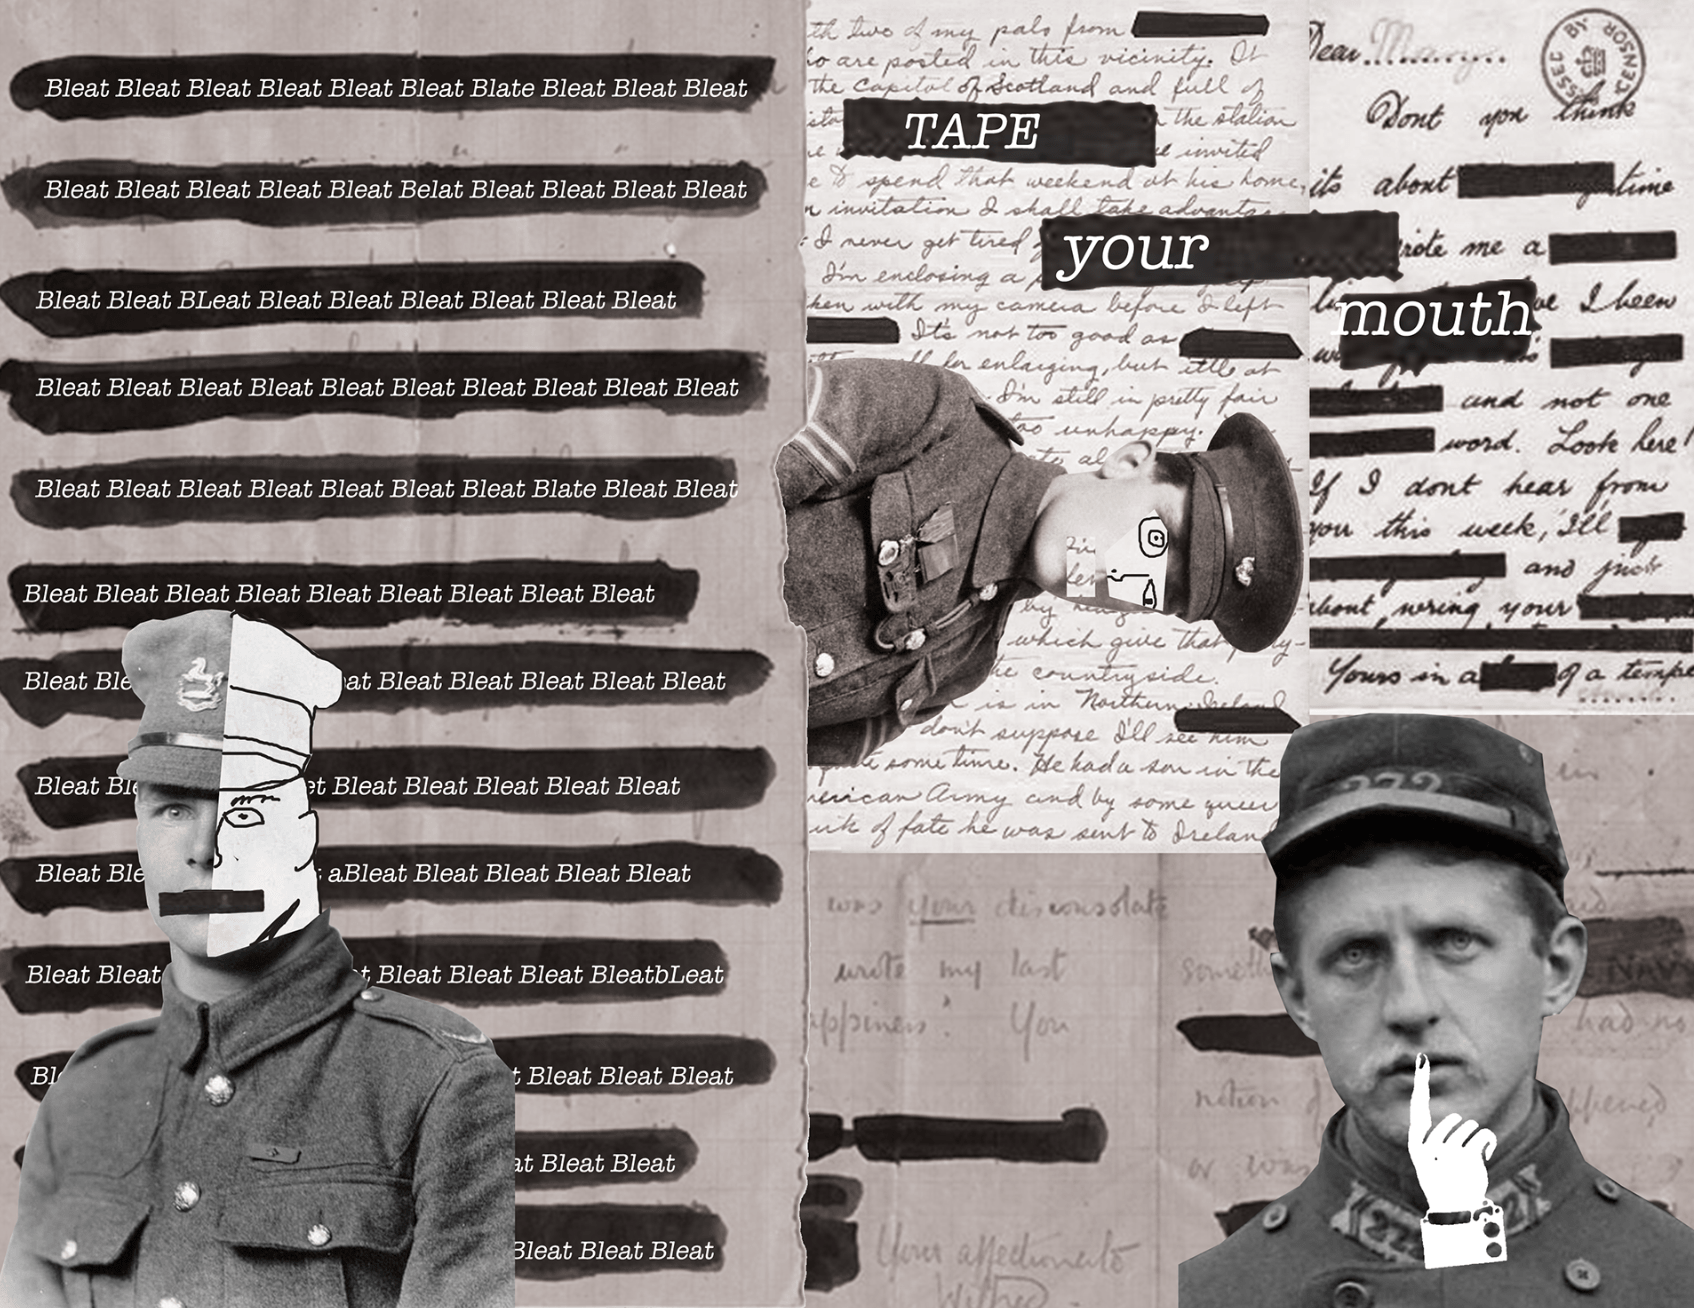 Bleat Bleat Bleat Bleat Bleat Bleat Blate Bleat Bleat Bleat
Bleat Bleat Bleat Bleat Bleat Belat Bleat Bleat Bleat Bleat
Bleat Bleat BLeat Bleat Bleat Bleat Bleat Bleat Bleat
Bleat Bleat Bleat Bleat Bleat Bleat Bleat Bleat Bleat Bleat
Bleat Bleat Bleat Bleat Bleat Bleat Bleat Blate Bleat Bleat
Bleat Bleat Bleat Bleat Bleat Bleat Bleat Bleat Bleat
Bleat Ble at Bleat Bleat Bleat Bleat Bleat
Bleat Ble et Bleat Bleat Bleat Bleat Bleat
Bleat Ble aBleat Bleat Bleat Bleat Bleat
Bleat Bleat t, Bleat Bleat Bleat BleatbLeat
Ble t Bleat Bleat Bleat
at Bleat Bleat
Bleat Bleat Bleat
th two of my pals from
ho are posted in this vicinity. It
the Capitol of Scotland and full of
TAPE
the station
invited
to spend that weekend at his home,
invitation I shall take advantage
I never get tired
your
I'm enclosing a
ken with my camera before I left
It's not too good as
for enlarging, but it'll at
I'm still in pretty fair
too unhappy.
by
which give that
the countryside.
is in Northern Ireland
don't suppose I'll see him
quite some time. He had a son in the
American Army and by some queer
irk of fate he was sent to Ireland
Dear Mary
CENSOR
Dont you think
its about time
wrote me a
mouth
I been
and not one
word. Look here!
If I dont hear from
you this week, I'll
and just
about wring your
Yours in a of a temper
was your disconsolate
wrote my last
somethi
appiness'. You
had no
notion
ppened
or was
NAVY
272
Your affectionate
Wilfred